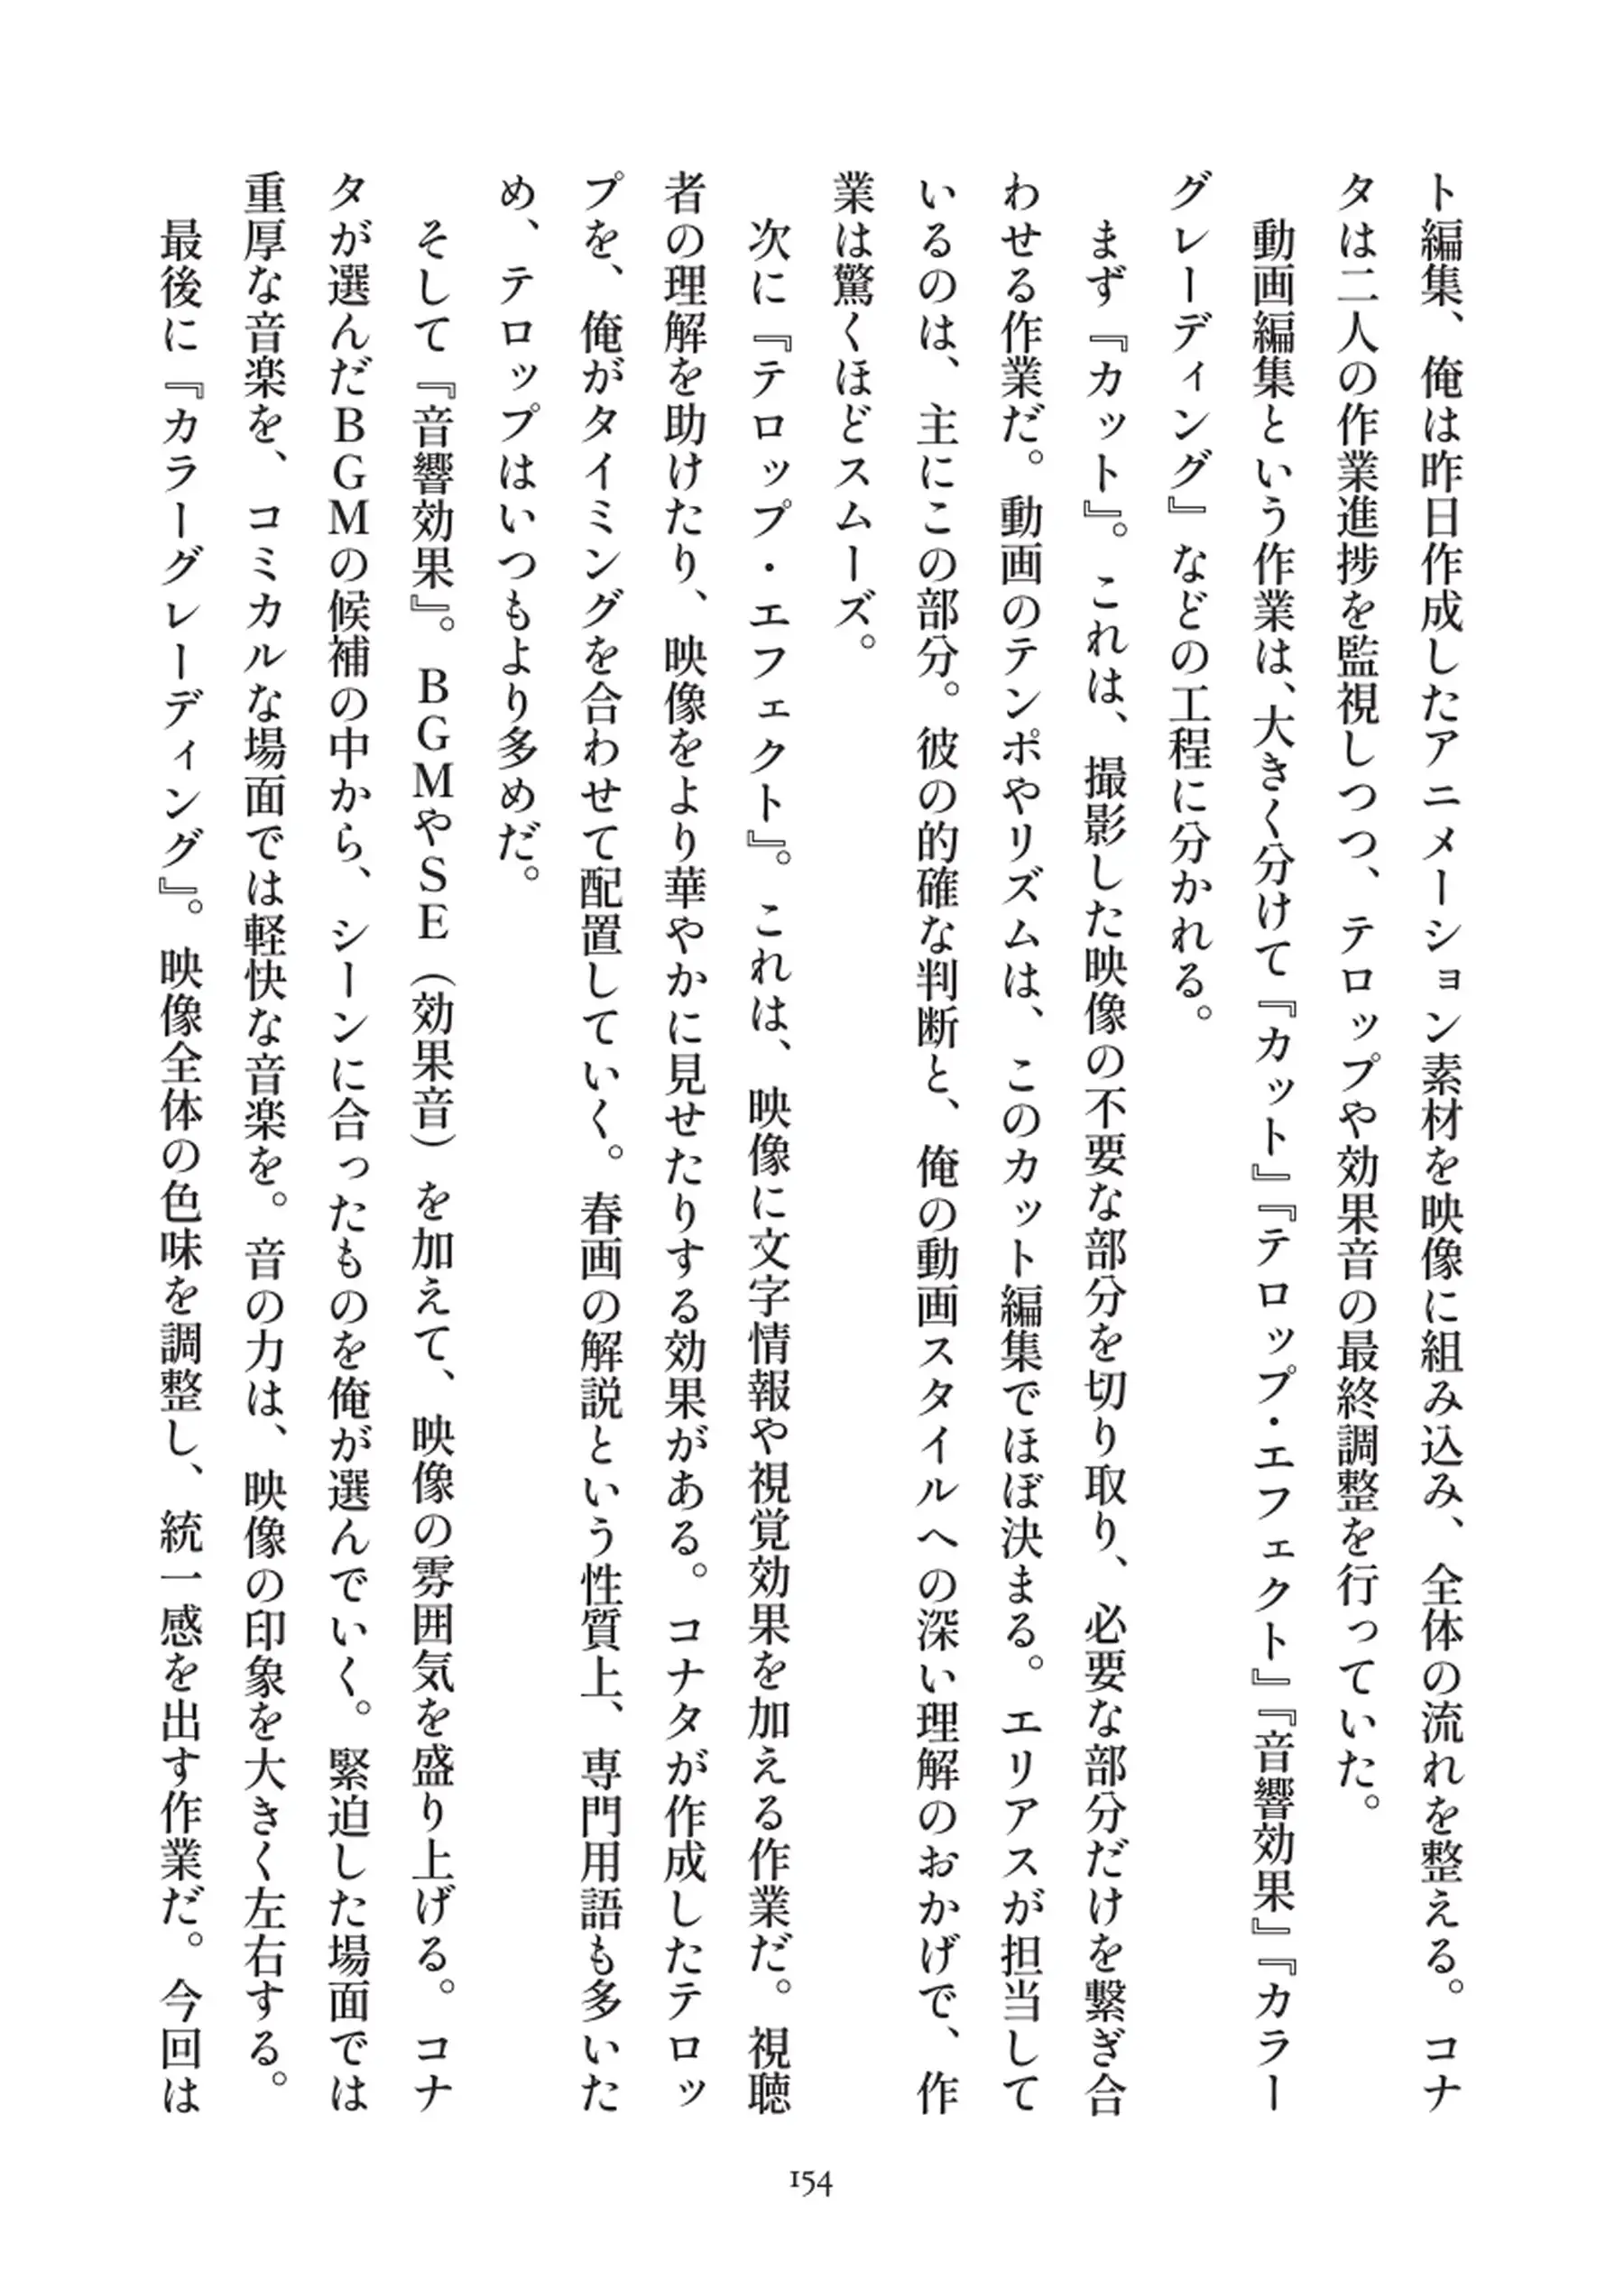 ト編集、俺は昨日作成したアニメーション素材を映像に組み込み、全体の流れを整える。コナ
タは二人の作業進捗を監視しつつ、テロップや効果音の最終調整を行っていた。
　動画編集という作業は、大きく分けて『カット』『テロップ・エフェクト』『音響効果』『カラー
グレーディング』などの工程に分かれる。
　まず『カット』。これは、撮影した映像の不要な部分を切り取り、必要な部分だけを繋ぎ合
わせる作業だ。動画のテンポやリズムは、このカット編集でほぼ決まる。エリアスが担当して
いるのは、主にこの部分。彼の的確な判断と、俺の動画スタイルへの深い理解のおかげで、作
業は驚くほどスムーズ。
　次に『テロップ・エフェクト』。これは、映像に文字情報や視覚効果を加える作業だ。視聴
者の理解を助けたり、映像をより華やかに見せたりする効果がある。コナタが作成したテロッ
プを、俺がタイミングを合わせて配置していく。春画の解説という性質上、専門用語も多いた
め、テロップはいつもより多めだ。
　そして『音響効果』。BGMやSE（効果音）を加えて、映像の雰囲気を盛り上げる。コナ
タが選んだBGMの候補の中から、シーンに合ったものを俺が選んでいく。緊迫した場面では
重厚な音楽を、コミカルな場面では軽快な音楽を。音の力は、映像の印象を大きく左右する。
　最後に『カラーグレーディング』。映像全体の色味を調整し、統一感を出す作業だ。今回は
154